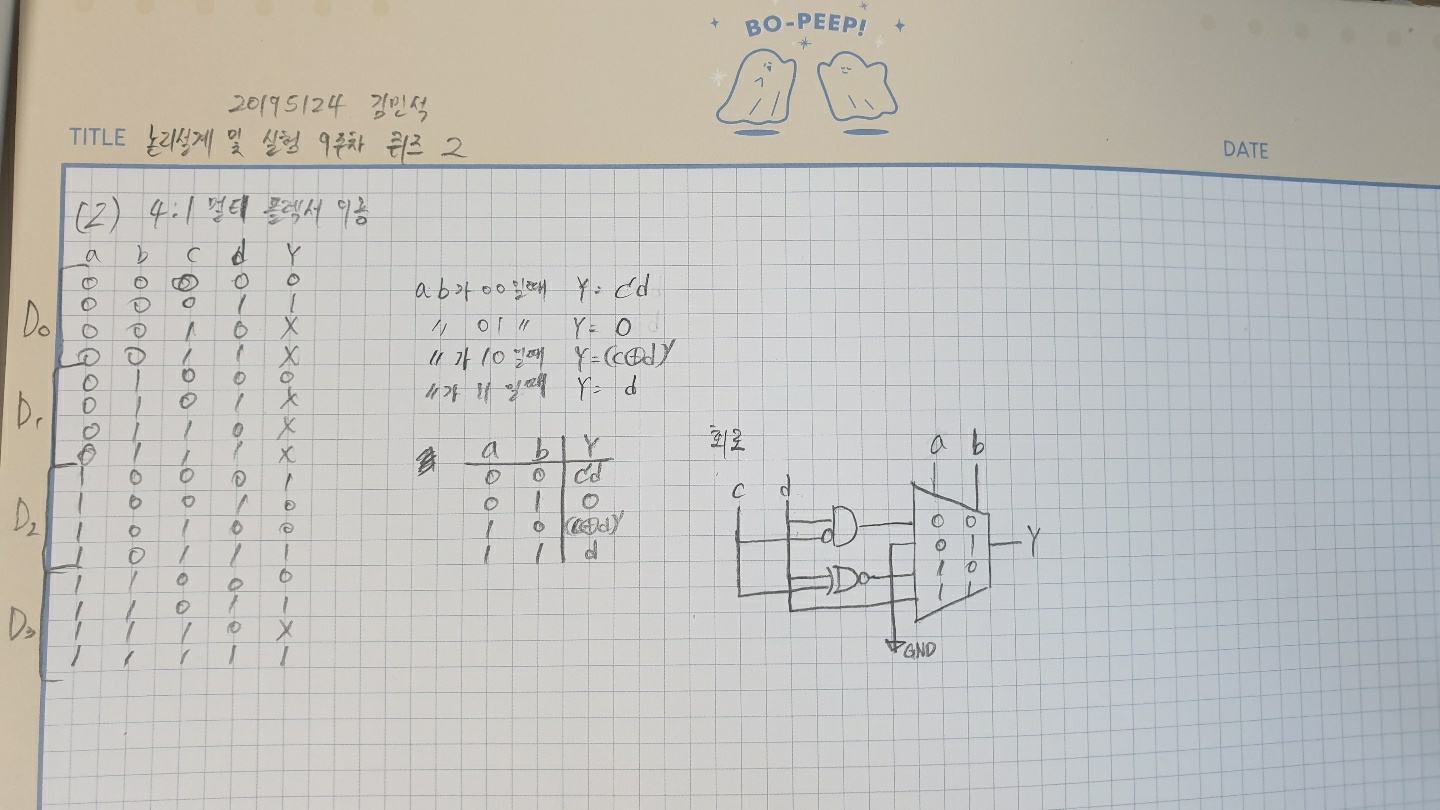 BO-PEEP!
20195124 김민석
TITLE 논리설계 및 실험 9주차 퀴즈 2
DATE
(2) 4:1 멀티 플렉서 이용
a b c d Y
D₀
0 0 0 0 0
0 0 0 1 1
0 0 1 0 X
0 0 1 1 X
D₁
0 1 0 0 0
0 1 0 1 X
0 1 1 0 X
0 1 1 1 X
D₂
1 0 0 0 1
1 0 0 1 0
1 0 1 0 0
1 0 1 1 1
D₃
1 1 0 0 0
1 1 0 1 1
1 1 1 0 X
1 1 1 1 1
a b가 00일때 Y= c'd
〃 01 〃 Y= 0
〃가 10일때 Y=(c⊕d)'
〃가 11일때 Y= d
a b Y
0 0 c'd
0 1 0
1 0 (c⊕d)'
1 1 d
회로
a b
c d
0 0
0 1
1 0
1 1
Y
GND